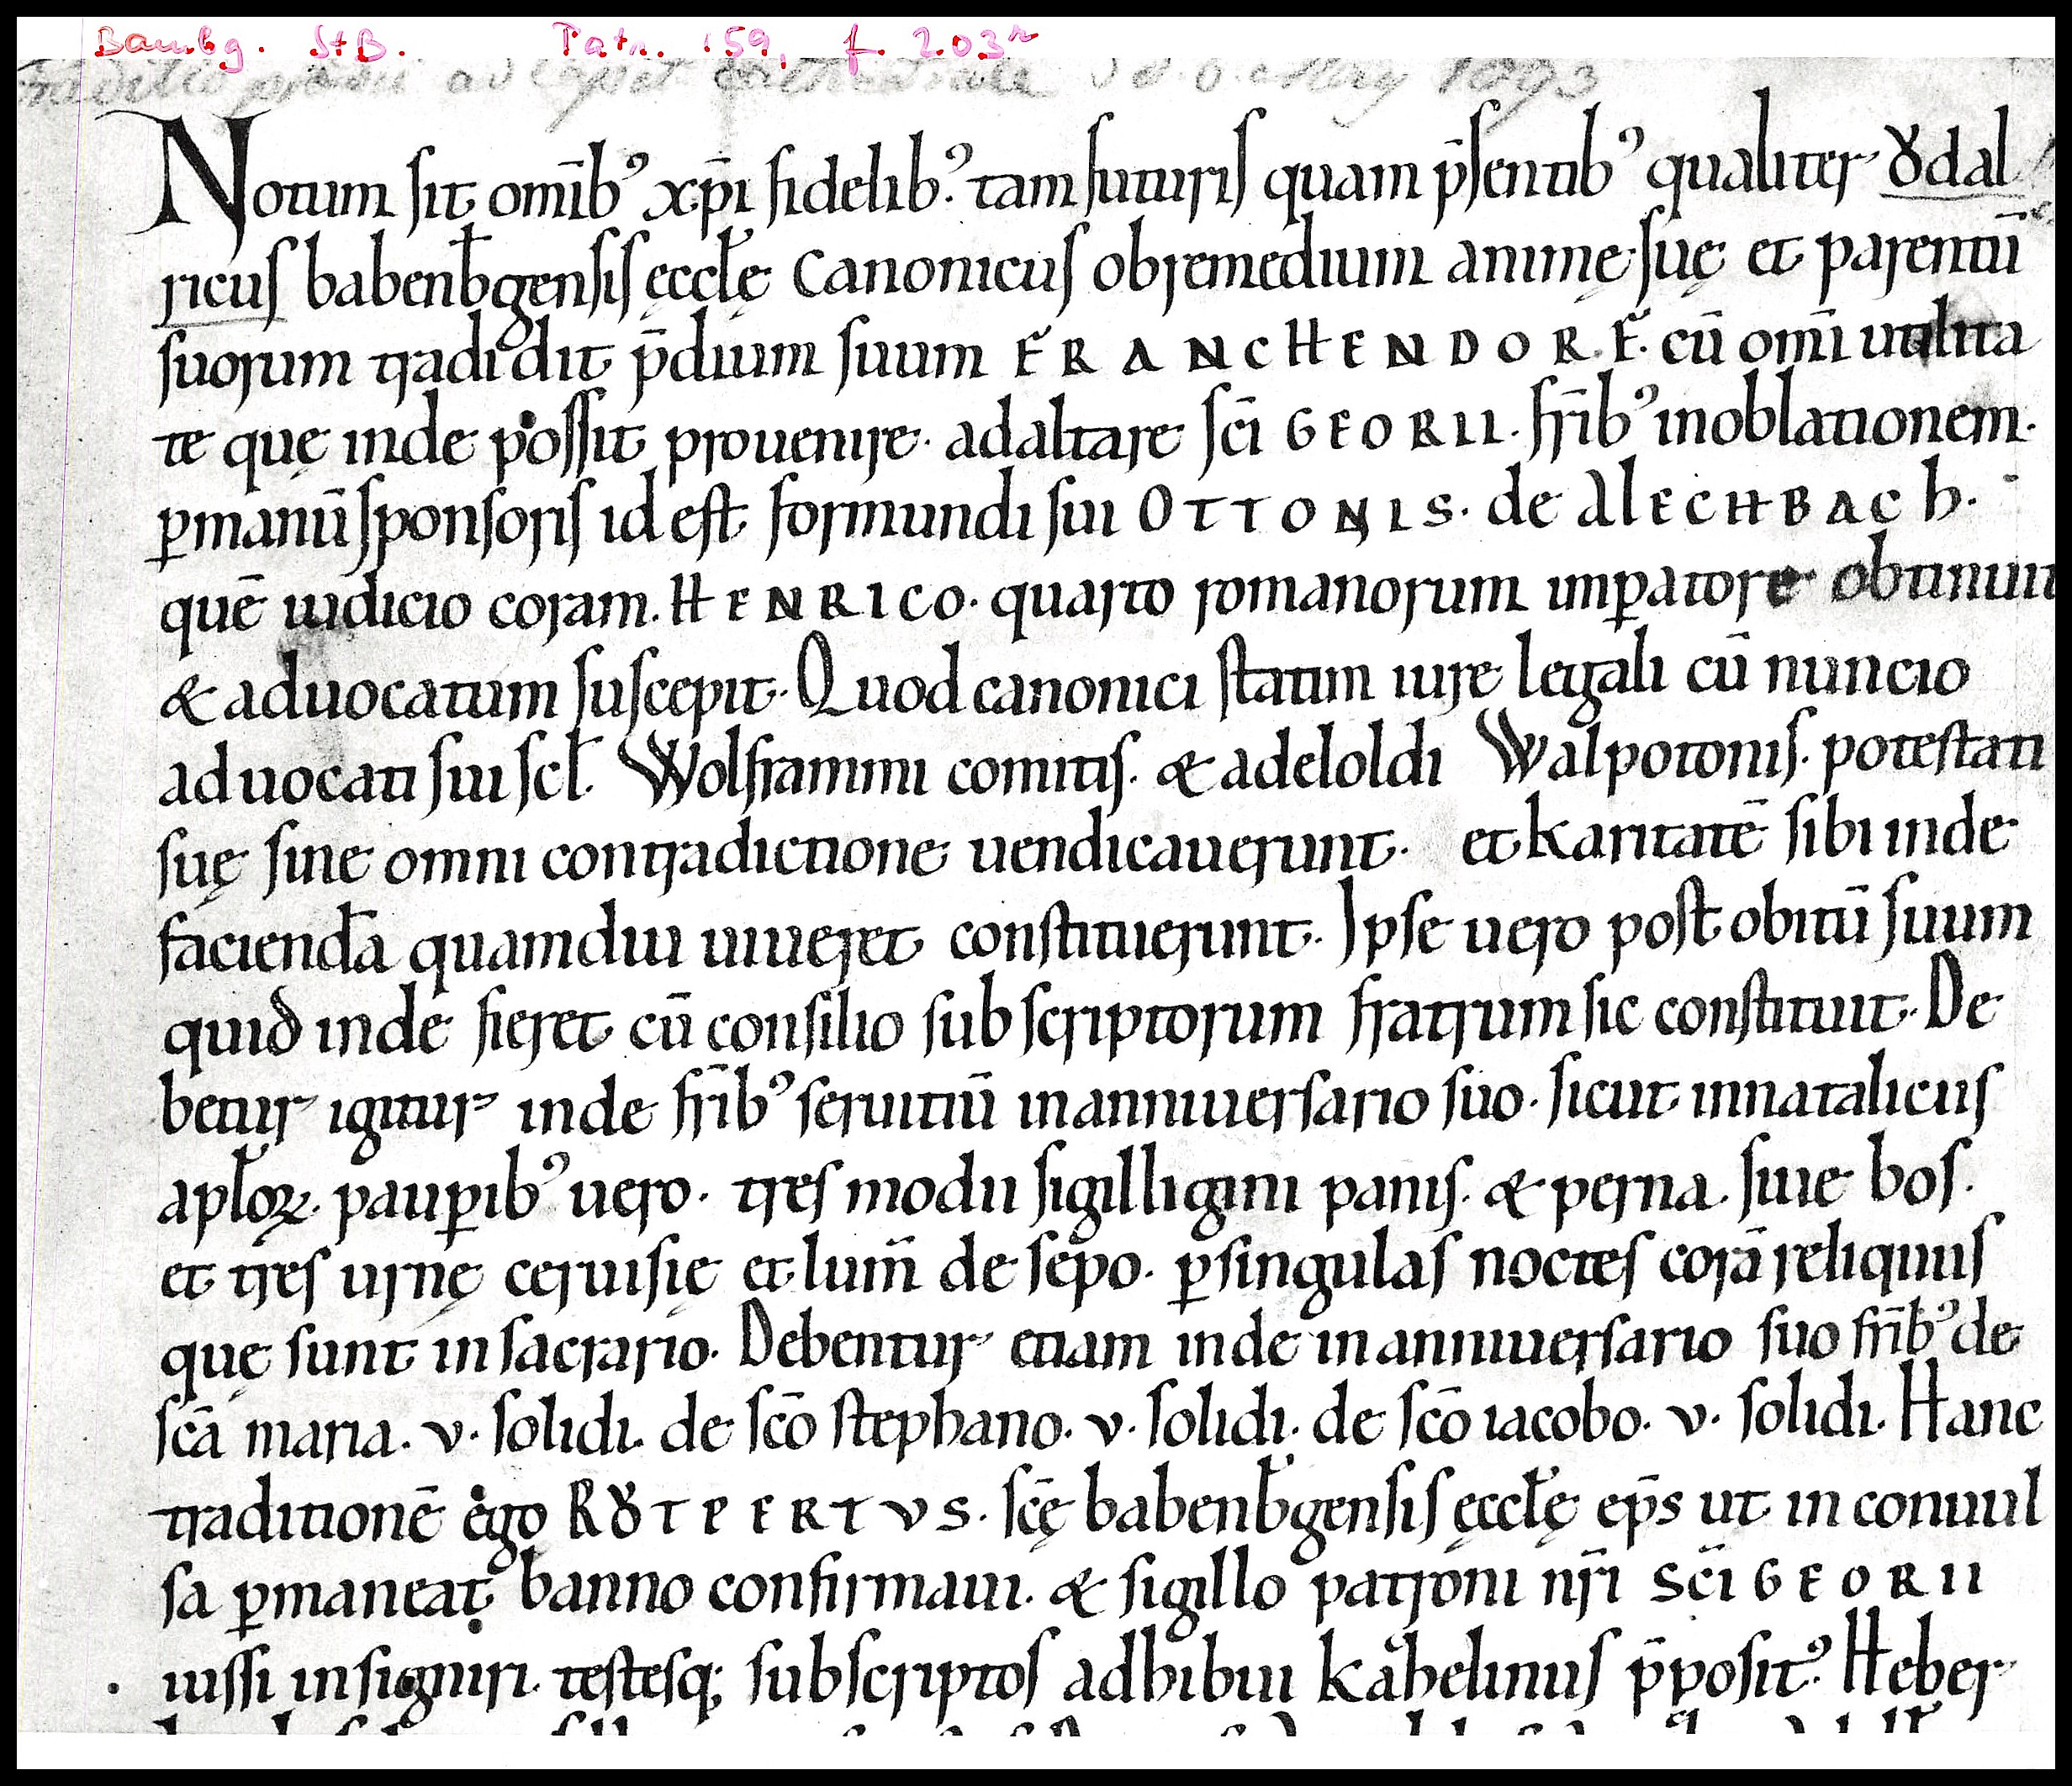 Bambg. StB. Patr. 159, f. 203r
May 1093
Notum ſit om̄ibꝰ xp̄i fidelibꝰ. tam futuriſ quam p̄ſentibꝰ qualiter Ȣdal
ricuſ babenb̄genſiſ ęccłę Canonicuſ obremedium animę ſuę et parentū
ſuorum tradidit p̄dium ſuum FRANCHENDORF. cū om̄i utilita
te quę inde poſſit prouenire. adaltare ſc̄i GEORII. fr̄ibꝰ inoblationem.
ꝑmanū ſponſoriſ id eſt formundi ſui OTTONIS. de AlECHBACh.
quē iudicio coram. HENRICO. quarto romanorum imꝑatore obtinuit
& aduocatum ſuſcepit. Quod canonici ſtatim iure legali cū nuncio
aduocati ſui ſcł. Wolframmi comitiſ. & adeloldi Walpotoniſ. poteſtati
ſuę ſine omni contradictione uendicauerunt. et karitatē ſibi inde
faciendā quamdiu uiueret conſtituerunt. Ipſe uero poſt obitū ſuum
quid inde fieret cū conſilio ſubſcriptorum fratrum ſic conſtituit. De
betur igitur inde fr̄ibꝰ ſeruitiū in anniuerſario ſuo. ſicut innatalicuſ
apłoꝝ. pauꝑibꝰ uero. treſ modii ſigilligini paniſ. & perna. ſiue boſ.
et treſ urnę ceruiſię et lum̄ de ſepo. ꝑſingulaſ nocteſ corā reliquiiſ
quę ſunt in ſacrario. Debentur etiam inde in anniuerſario ſuo fr̄ibꝰ de
ſcā maria. v. ſolidi. de ſcō ſtephano. v. ſolidi. de ſcō iacobo. v. ſolidi. Hanc
traditionē ego RȢTPERTVS. ſcę̄ babenb̄genſiſ ęccłę ep̄s ut in conuul
ſa ꝑmaneat banno confirmaui. & ſigillo patroni nr̄i Sc̄i GEORII
iuſſi inſigniri. teſteſq; ſubſcriptoſ adhibui kahelinuſ p̄poſitꝰ. Heber